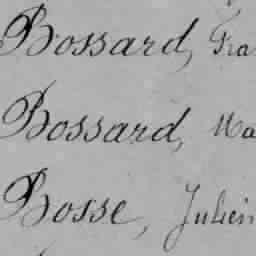 Bossard, Fra
Bossard, Ma
Bosse, Julien